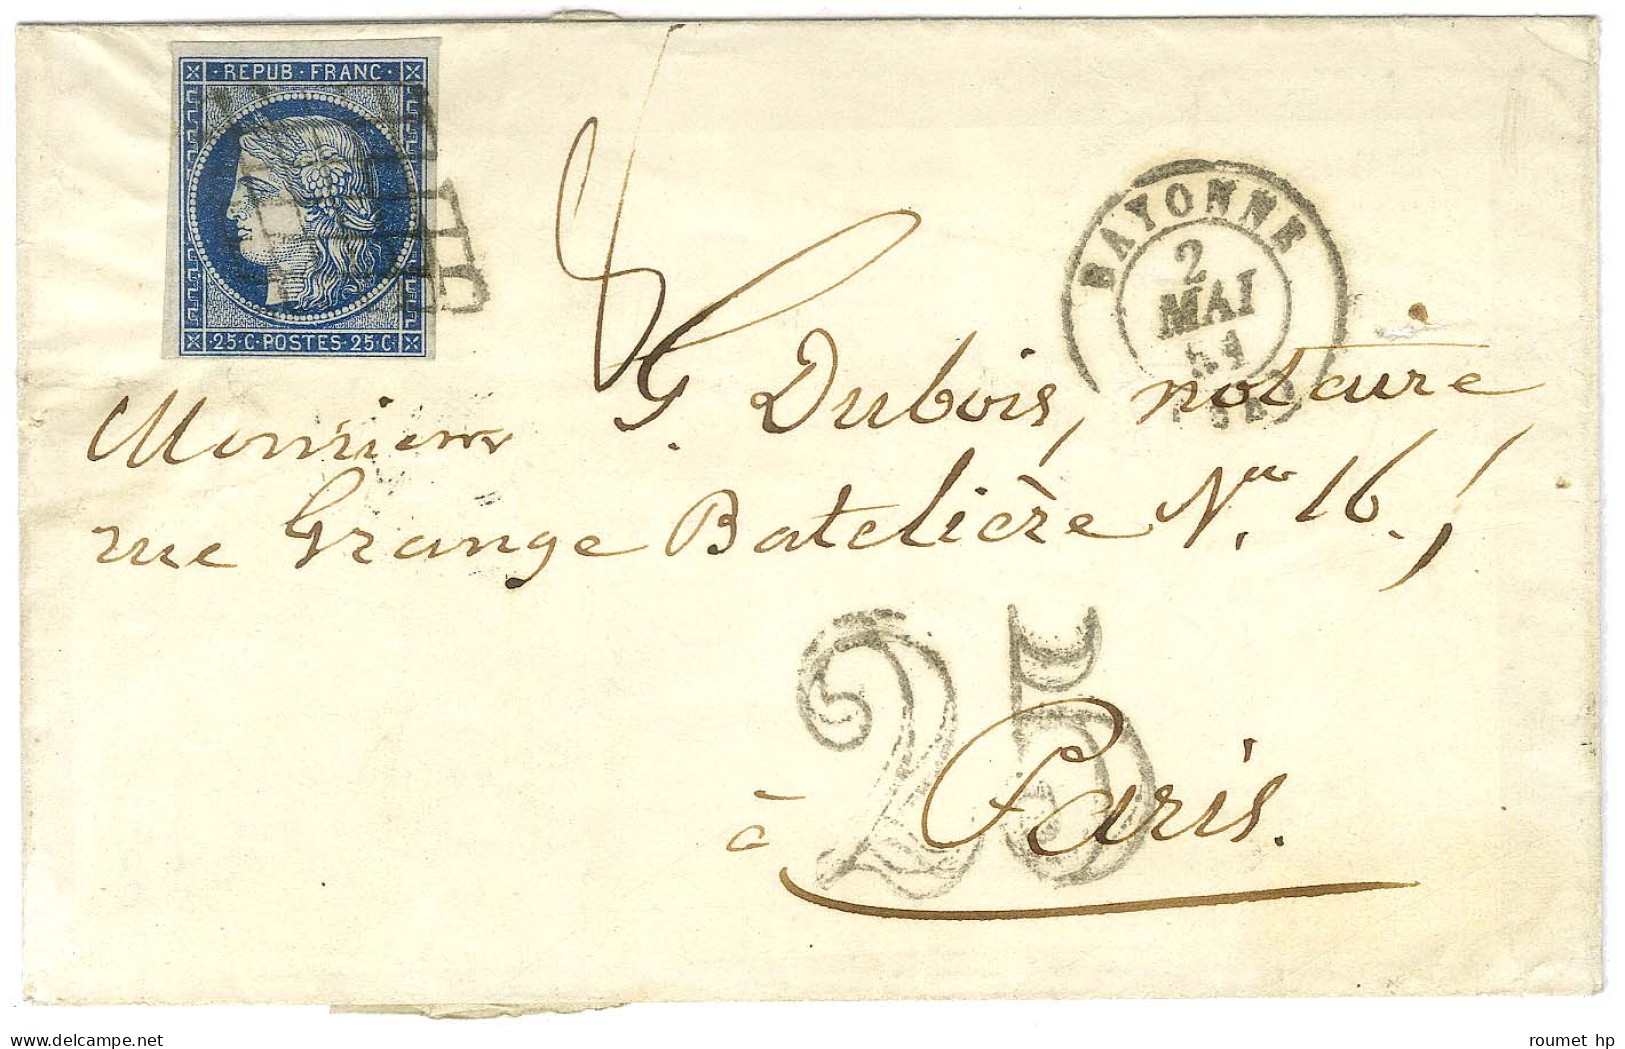 · REPUB · FRANC ·
25 · C · POSTES · 25 · C
BAYONNE
2
MAI
51
Monsieur G. Dubois, notaire
rue Grange Batelière No. 16.
25
à Paris.
delcampe.net
roumet hp